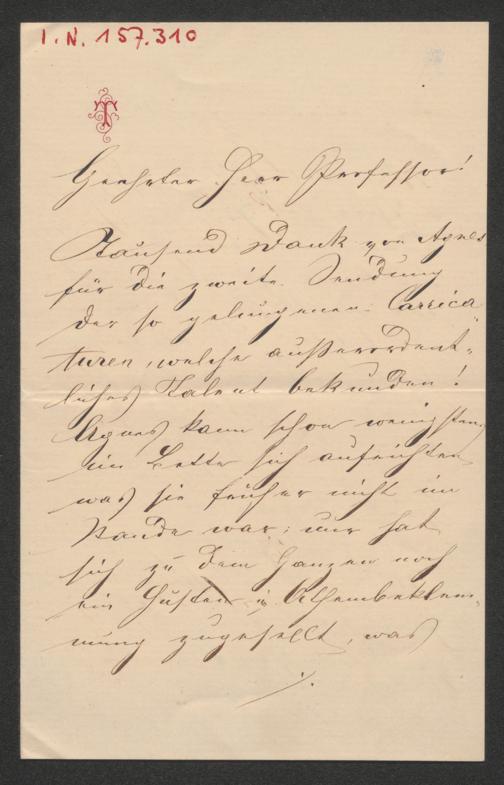 I.N. 157.310
T
Geehrter Herr Professor!
Tausend Dank von Agnes
für die zweite Sendung
der so gelungenen Carrica-
turen, welche außerordent-
liches Talent bekunden!
Agnes kann schon wenigstens
im Bette sich aufrichten
was sie früher nicht im
Stande war; nur hat
sich zu dem Ganzen noch
ein Husten u. Athembeklem-
mung zugesellt, was
./.